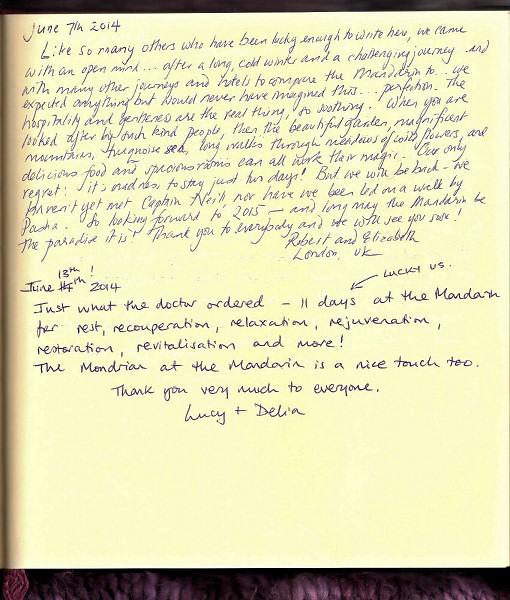 June 7th 2014
Like so many others who have been lucky enough to write here, we came
with an open mind... after a long, cold winter and a challenging journey. And
with many other journeys and hotels to compare the Mandarin to... we
expected anything but would never have imagined this... perfection. The
hospitality and gentleness are the real thing, so soothing. When you are
looked after by such kind people, then the beautiful garden, magnificent
mountains, turquoise sea, long walks through meadows of wild flowers, and
delicious food and spacious rooms can all work their magic. Our only
regret: it's madness to stay just two days! But we will be back - we
haven't yet met Captain Neill, nor have we been led on a walk by
Pasha. So looking forward to 2015 - and long may the Mandarin be
the paradise it is! Thank you to everybody and we will see you soon!
Robert and Elizabeth
London, UK
13th!
June 14th 2014
LUCKY US.
Just what the doctor ordered - 11 days at the Mandarin
for rest, recouperation, relaxation, rejuvenation,
restoration, revitalisation and more!
The Mondrian at the Mandarin is a nice touch too.
Thank you very much to everyone.
Lucy + Delia